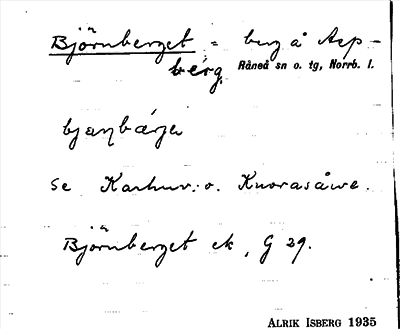 Björnberget = berg å Asp-
berg.
Råneå sn o. tg, Norrb. l.
bjɑɳbærje
se Karhuv. o. Knorasåive.
Björnberget ek, G 29.
ALRIK ISBERG 1935